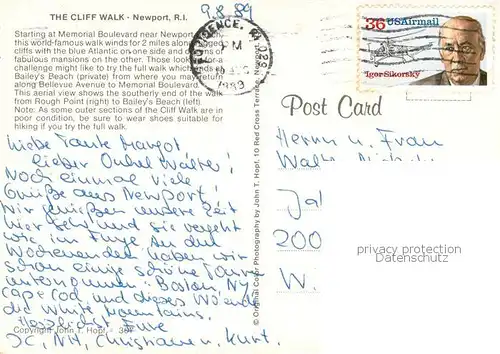 THE CLIFF WALK - Newport, R.I.
Starting at Memorial Boulevard near Newport
this world-famous walk winds for 2 miles along
cliffs with the blue Atlantic on one side and
fabulous mansions on the other. Those looking for a
challenge might like to try the full walk which ends
Bailey's Beach (private) from where you may
along Bellevue Avenue to Memorial Boulevard.
This aerial view shows the southerly end of the walk
from Rough Point (right) to Bailey's Beach (left).
Note: As some outer sections of the Cliff Walk are in
poor condition, be sure to wear shoes suitable for
hiking if you try the full walk.
9.8.89
PROVIDENCE, RI 028
PM
1989
36 USAirmail
Igor Sikorsky
Post Card
© Original Color Photography by John T. Hopf, 10 Red Cross Terrace,
Liebe Tante Margot,
lieber Onkel Walter!
Noch einmal viele
Grüße aus Newport!
Wir genießen unsere Zeit
hier sehr und sie vergeht
wie im Fluge. An den
Wochenenden haben wir
schon einige schöne Touren
unternommen: Boston, NY,
Cape Cod, und dieses Wo'ende
die White Mountains.
Herzlichst Eure
Christiane u. Kurt.
Copyright John T. Hopf
Herrn u. Frau
Jal
200
W.
privacy protection
Datenschutz